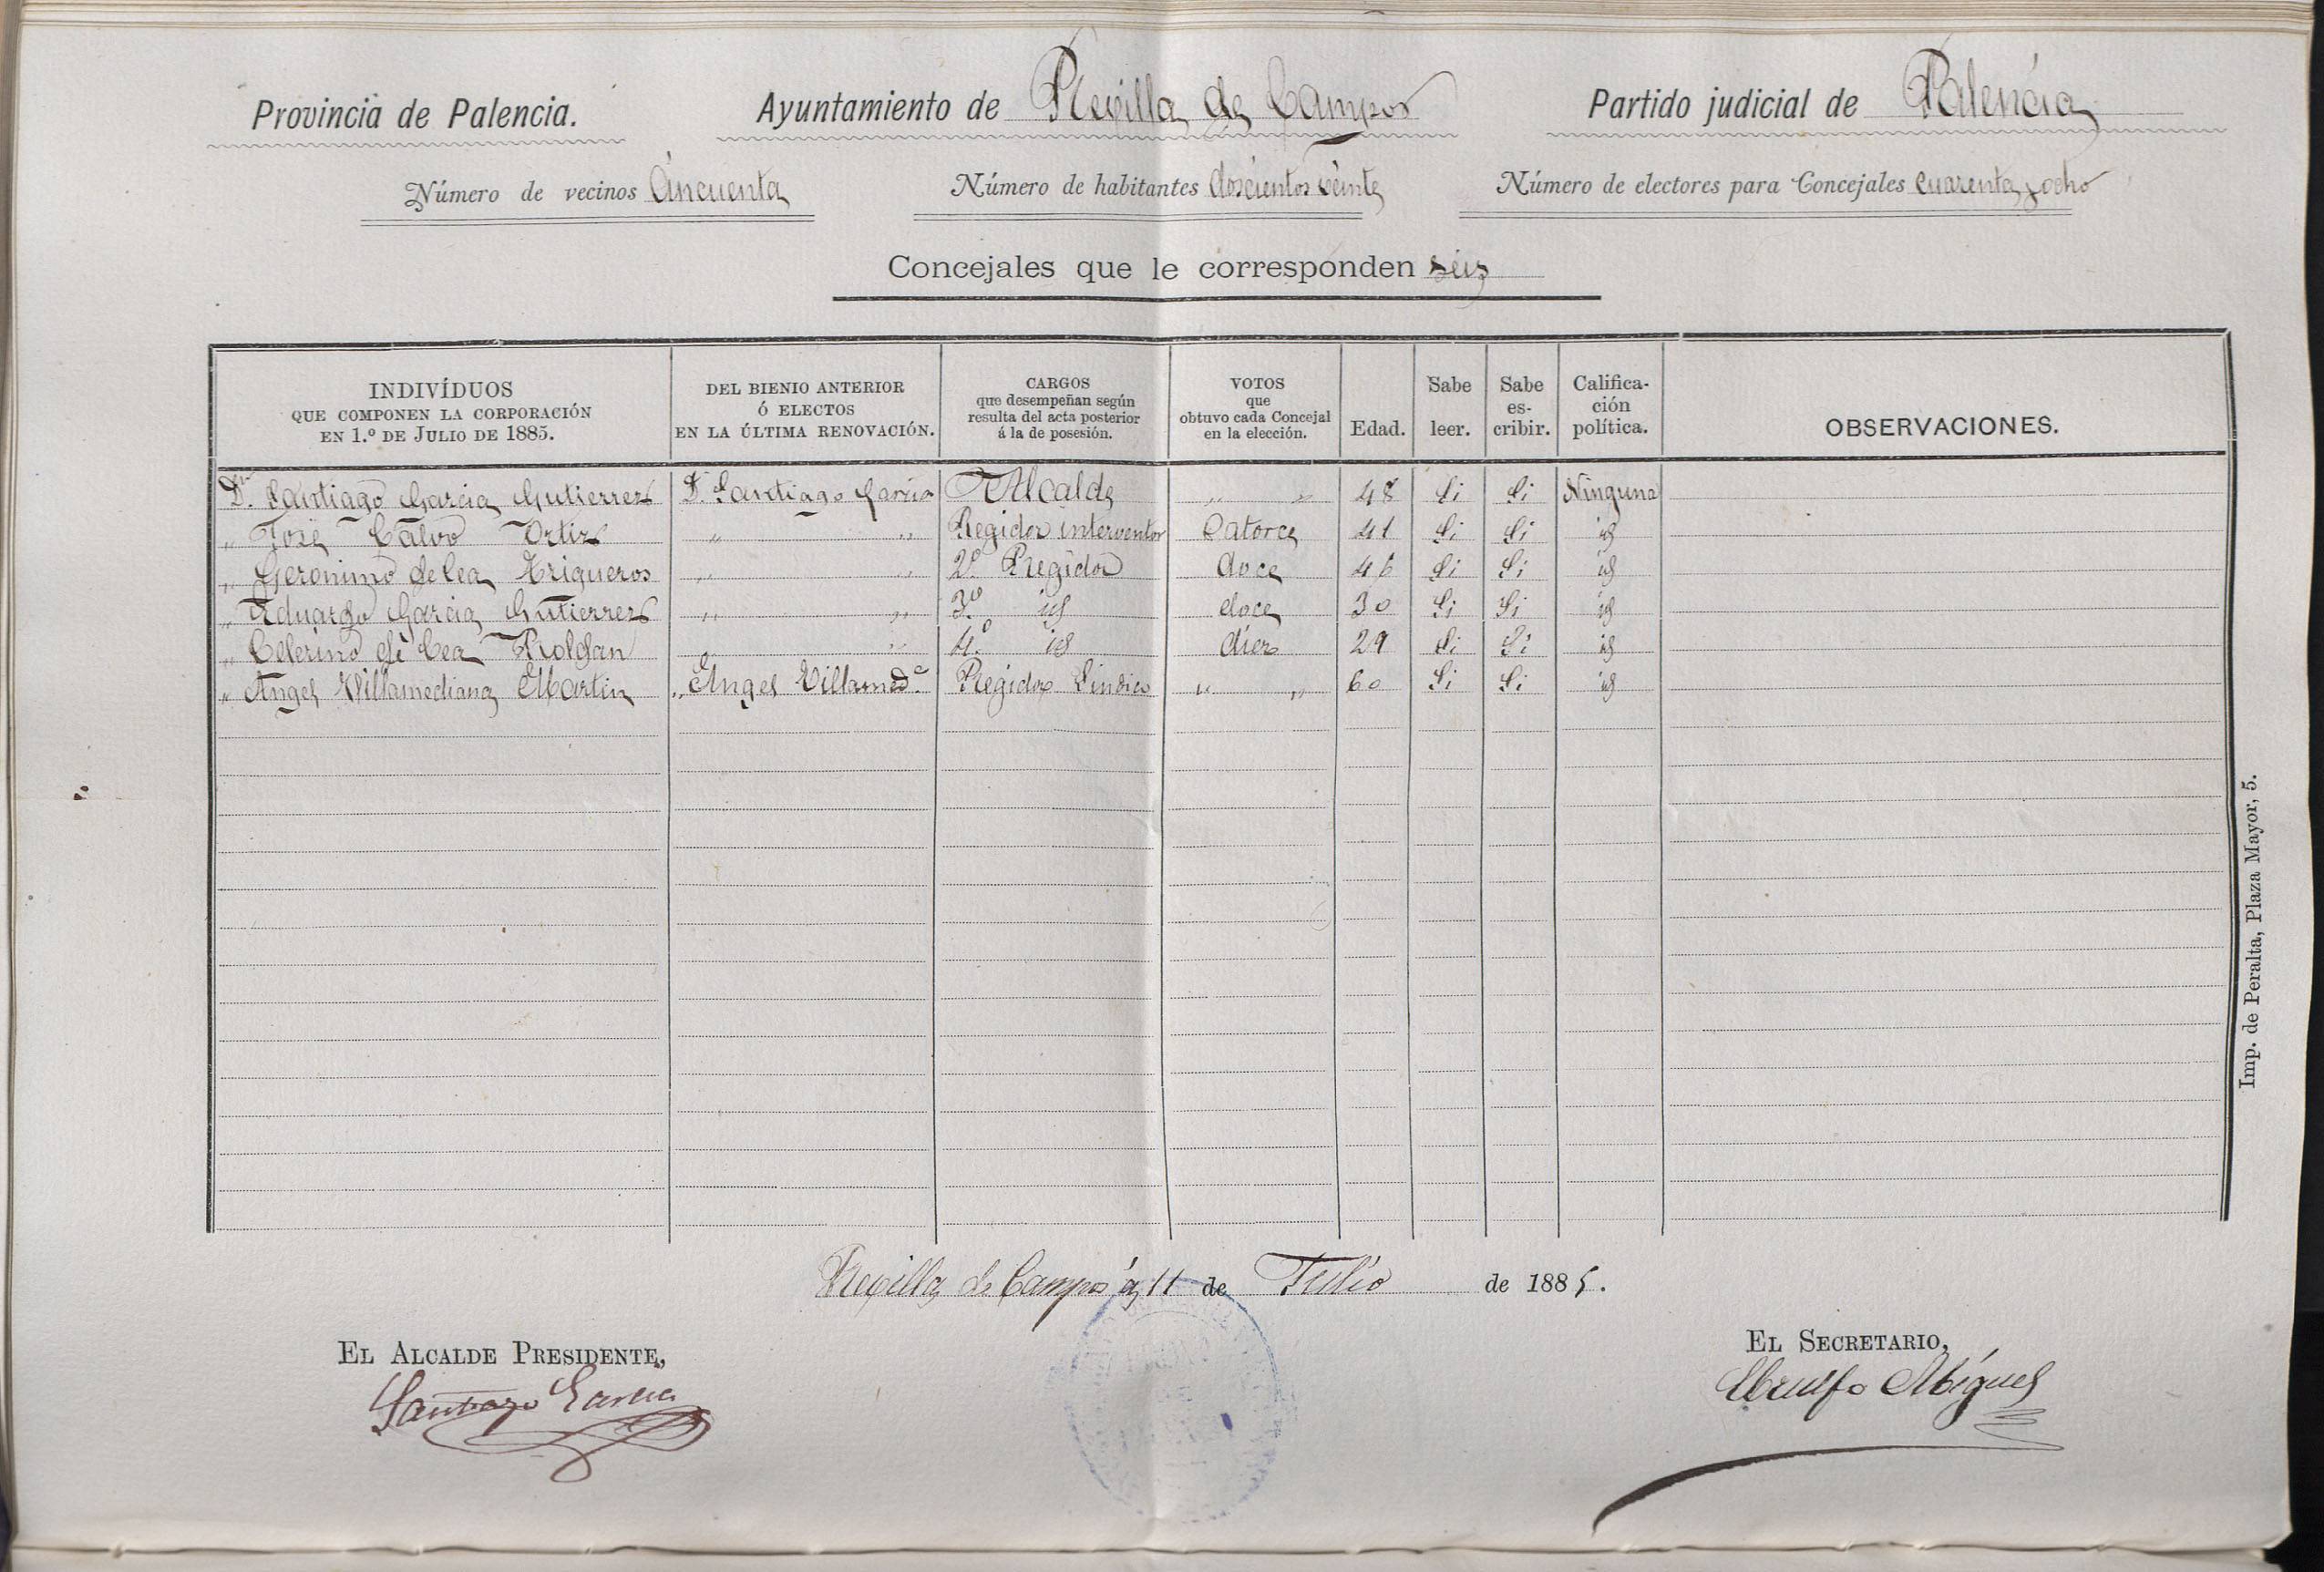 Provincia de Palencia. Ayuntamiento de Revilla de Campos Partido judicial de Palencia
Número de vecinos Cincuenta Número de habitantes doscientos veinte Número de electores para Concejales cuarenta y ocho
Concejales que le corresponden seis
INDIVÍDUOS QUE COMPONEN LA CORPORACIÓN EN 1.º DE JULIO DE 1885. DEL BIENIO ANTERIOR Ó ELECTOS EN LA ÚLTIMA RENOVACIÓN. CARGOS que desempeñan según resulta del acta posterior á la de posesión. VOTOS que obtuvo cada Concejal en la elección. Edad. Sabe leer. Sabe es-cribir. Califica-ción política. OBSERVACIONES.
D. Santiago Garcia Gutierrez D. Santiago Garcia Alcalde " " 48 Si Si Ninguna
" José Calvo Ortiz " " Regidor interventor Catorce 41 Si Si id
" Geronimo de Cea Trigueros " " 2º Regidor doce 46 Si Si id
" Eduardo Garcia Gutierrez " " 3º id doce 30 Si Si id
" Celerino de Cea Roldan " " 4º id diez 29 Si Si id
" Angel Villamediana Martin " Angel Villamed.ª Regidor Sindico " " 60 Si Si id
Revilla de Campos á 11 de Julio de 1885.
EL ALCALDE PRESIDENTE,
Santiago Garcia
EL SECRETARIO,
Miguel
Imp. de Peralta, Plaza Mayor, 5.